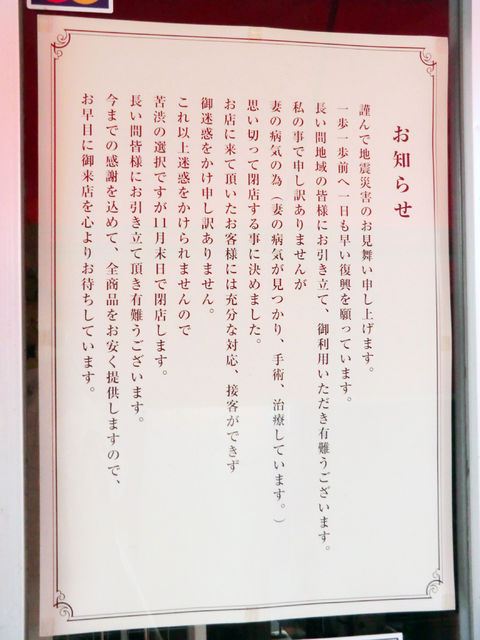 お知らせ
謹んで地震災害のお見舞い申し上げます。
一歩一歩前へ一日も早い復興を願っています。
長い間地域の皆様にお引き立て、御利用いただき有難うございます。
私の事で申し訳ありませんが
妻の病気の為（妻の病気が見つかり、手術、治療しています。）
思い切って閉店する事に決めました。
お店に来て頂いたお客様には充分な対応、接客ができず
御迷惑をかけ申し訳ありません。
これ以上迷惑をかけられませんので
苦渋の選択ですが11月末日で閉店します。
長い間皆様にお引き立て頂き有難うございます。
今までの感謝を込めて、全商品をお安く提供しますので、
お早目に御来店を心よりお待ちしています。